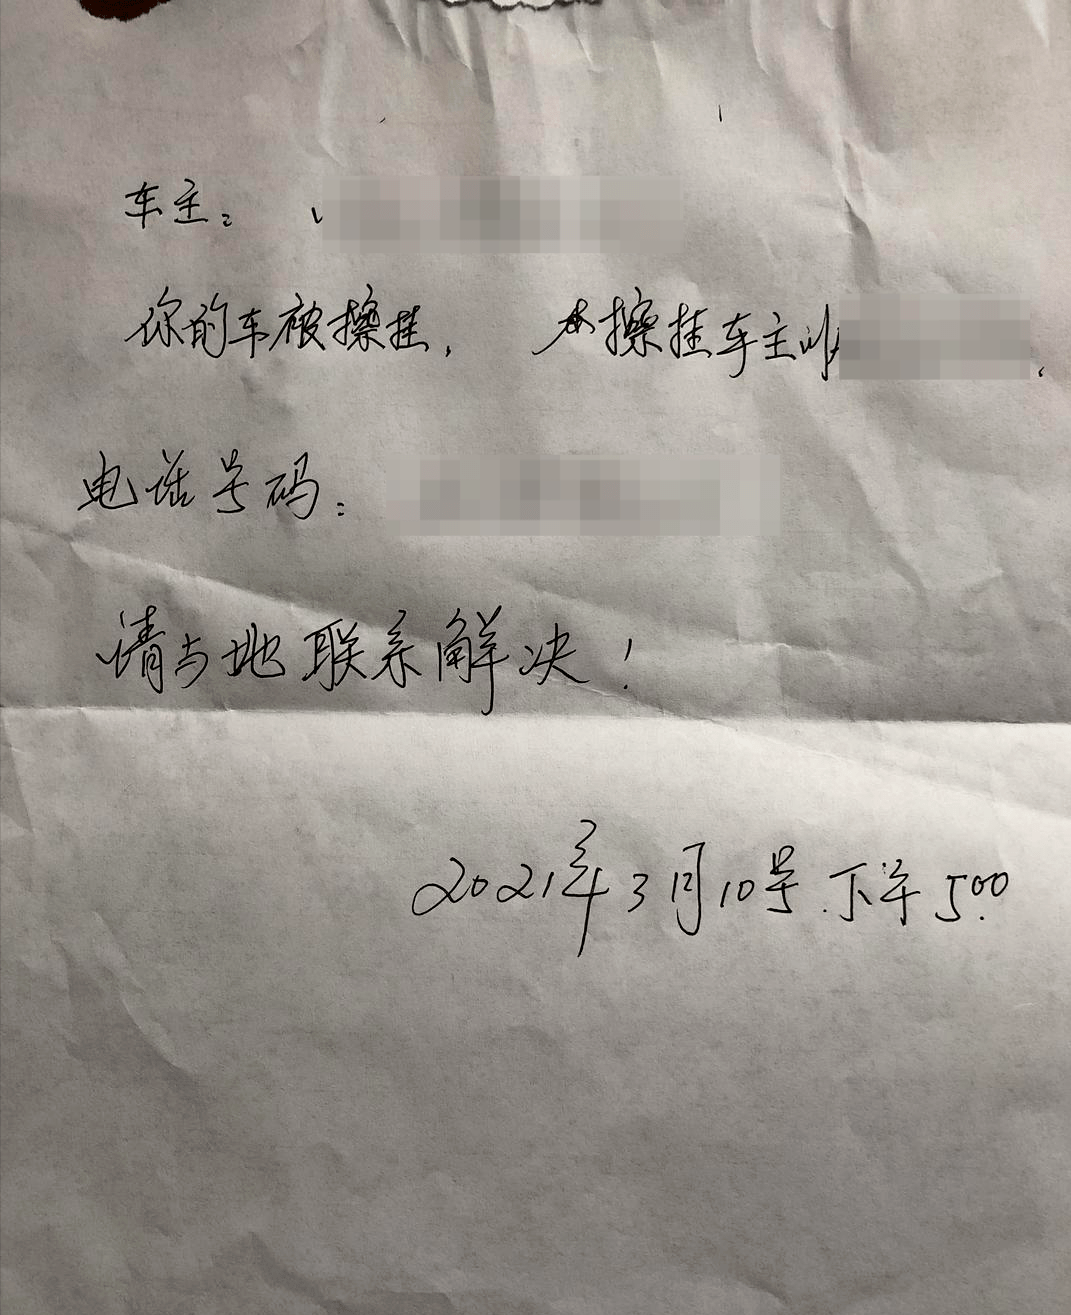 车主：
你的车被擦挂， 擦挂车主
电话号码：
请与她联系解决！
2021年3月10号.下午5:00